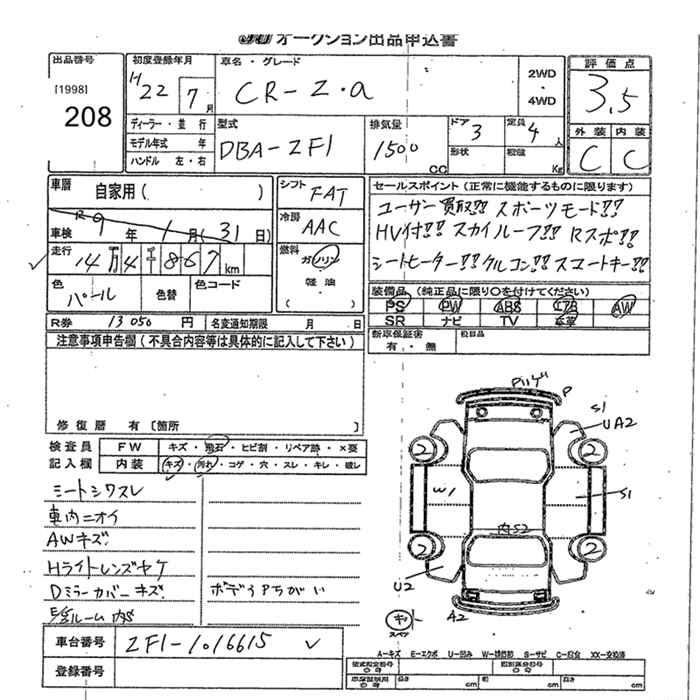 オークション出品申込書
出品番号
[1998]
208
初度登録年月
H22 7月
車名・グレード
CR-Z・α
2WD
・
4WD
評価点
3.5
外装 内装
C C
ディーラー・並行
モデル年式 年
ハンドル 左・右
型式
DBA-ZF1
排気量
1500 cc
ドア 3
形状
定員 4人
積載 Kg
車歴 自家用( )
車検 R9年 1月(31日)
走行 14万4千867km
色 パール
色替
色コード
シフト FAT
冷房 AAC
燃料 ガソリン
( 軽油 )
セールスポイント(正常に機能するものに限ります)
ユーザー買取!! スポーツモード!!
HV付!! スカイルーフ!! Rスポ!!
シートヒーター!! クルコン!! スマートキー!!
装備品(純正品に限り○を付けてください)
PS PW ABS エアB AW
SR ナビ TV 本革
新車保証書
有・無
R券 13050円 名変通知期限 月 日
注意事項申告欄(不具合内容等は具体的に記入して下さい)
修復歴 有〔箇所 〕
検査員
記入欄
FW キズ・飛石・ヒビ割・リペア跡・×要
内装 キズ・汚れ・コゲ・穴・スレ・キレ・破レ
シートシワスレ
車内ニオイ
AWキズ
Hライトレンズヤケ
Dミラーカバーキズ
ボデイPちがい
P
S1
UA2
2
2
W1
S1
内S2
2
2
U2
A2
キ
スペア
A-キズ E-エクボ U-凹み W-補修跡 S-サビ C-腐食 XX-交換済
車台番号 ZF1-1016615
登録番号
型式指定番号
類別区分番号
長さ cm 幅 cm 高さ cm